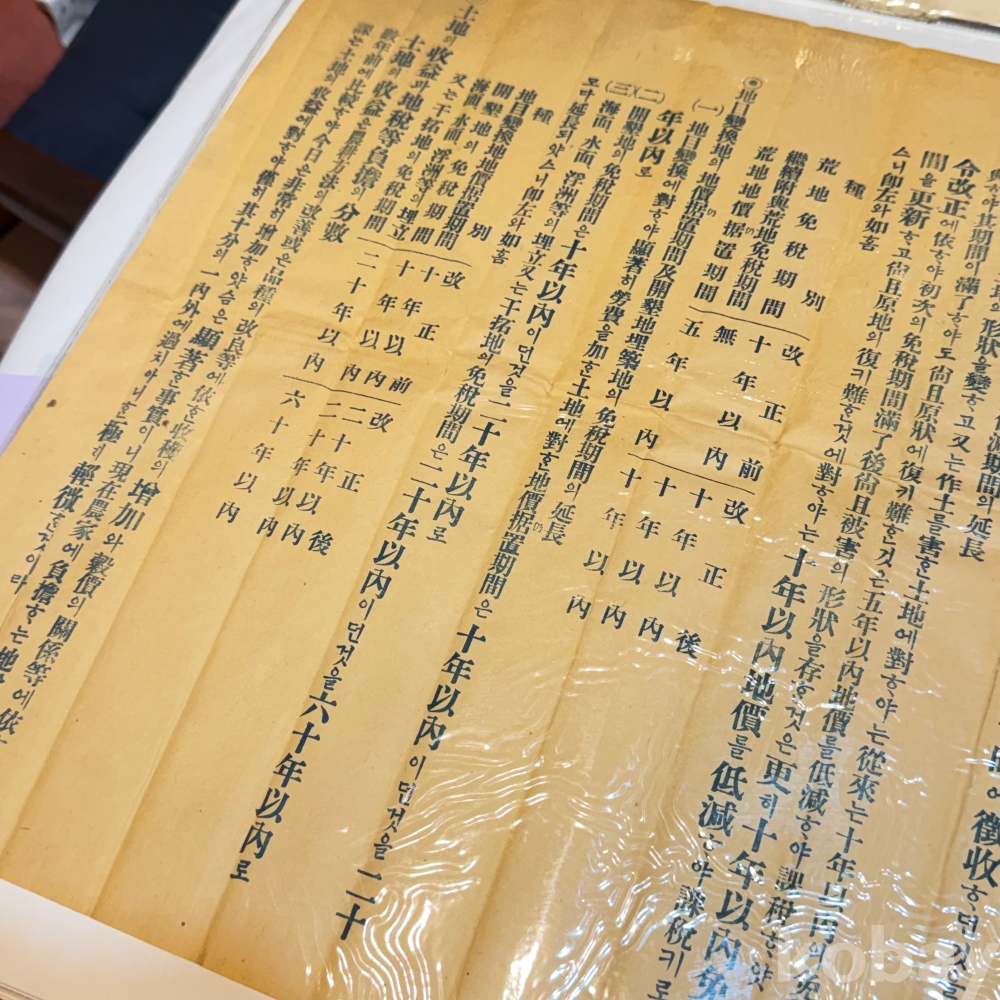 期間의 延長
形狀을 變ᄒᆞ고 又는 作土를 害ᄒᆞᆫ 土地에 對ᄒᆞ야는 從來는 十年以內의 免
ᄒᆞ야 其期間이 滿了ᄒᆞ야도 尙且原狀에 復키 難ᄒᆞᆫ것은 五年以內地價를 低減ᄒᆞ야 課稅ᄒᆞ얏
令改正에 依ᄒᆞ야 初次의 免稅期間滿了後尙且被害의 形狀을 存ᄒᆞᆫ것은 更히 十年以內免
間을 更新ᄒᆞ고 尙且原地의 復키 難ᄒᆞᆫ것에 對ᄒᆞ야는 十年以內地價를 低減ᄒᆞ야 課稅키로
스니 卽左와 如홈
種別 改正前 改正後
荒地免稅期間 十年以內 十年以內
繼續附與荒地免稅期間 無 十年以內
荒地地價의据置期間 五年以內 十年以內
◉地目變換地의 地價의据置期間及開墾地埋築地의 免稅期間의 延長
(一) 地目變換에 對ᄒᆞ야 顯著히 勞費을 加ᄒᆞᆫ 土地에 對ᄒᆞᆫ 地價의据置期間은 十年以內이던것을 二十
年以內로
(二) 開墾地의 免稅期間은 十年以內이던것을 二十年以內로
(三) 海面、水面、浮洲等의 埋立又는 干拓地의 免稅期間은 二十年以內이던것을 六十年以內로
모다 延長되얏스니 卽左와 如홈
種別 改正前 改正後
地目變換地地價据置期間 十年以內 二十年以內
開墾地의 免稅期間 十年以內 二十年以內
海面、水面、浮洲等의 埋立
又는 干拓地의 免稅期間 二十年以內 六十年以內
土地의 收益과 地稅等負擔의 分數
土地의 收益은 農耕方法의 改善或은 品種의 改良等에 依ᄒᆞᆫ 收穫의 增加와 穀價의 關係等에 依
數年前에 比較ᄒᆞ야 今日은 非常히 增加ᄒᆞ얏슴은 顯著ᄒᆞᆫ 事實이니 現在農家에 負擔ᄒᆞ는 地
課는 土地의 收益에 對ᄒᆞ야 僅히 其十分의 一內外에 過치 아니ᄒᆞᆫ 極히 輕微ᄒᆞᆫ것이라